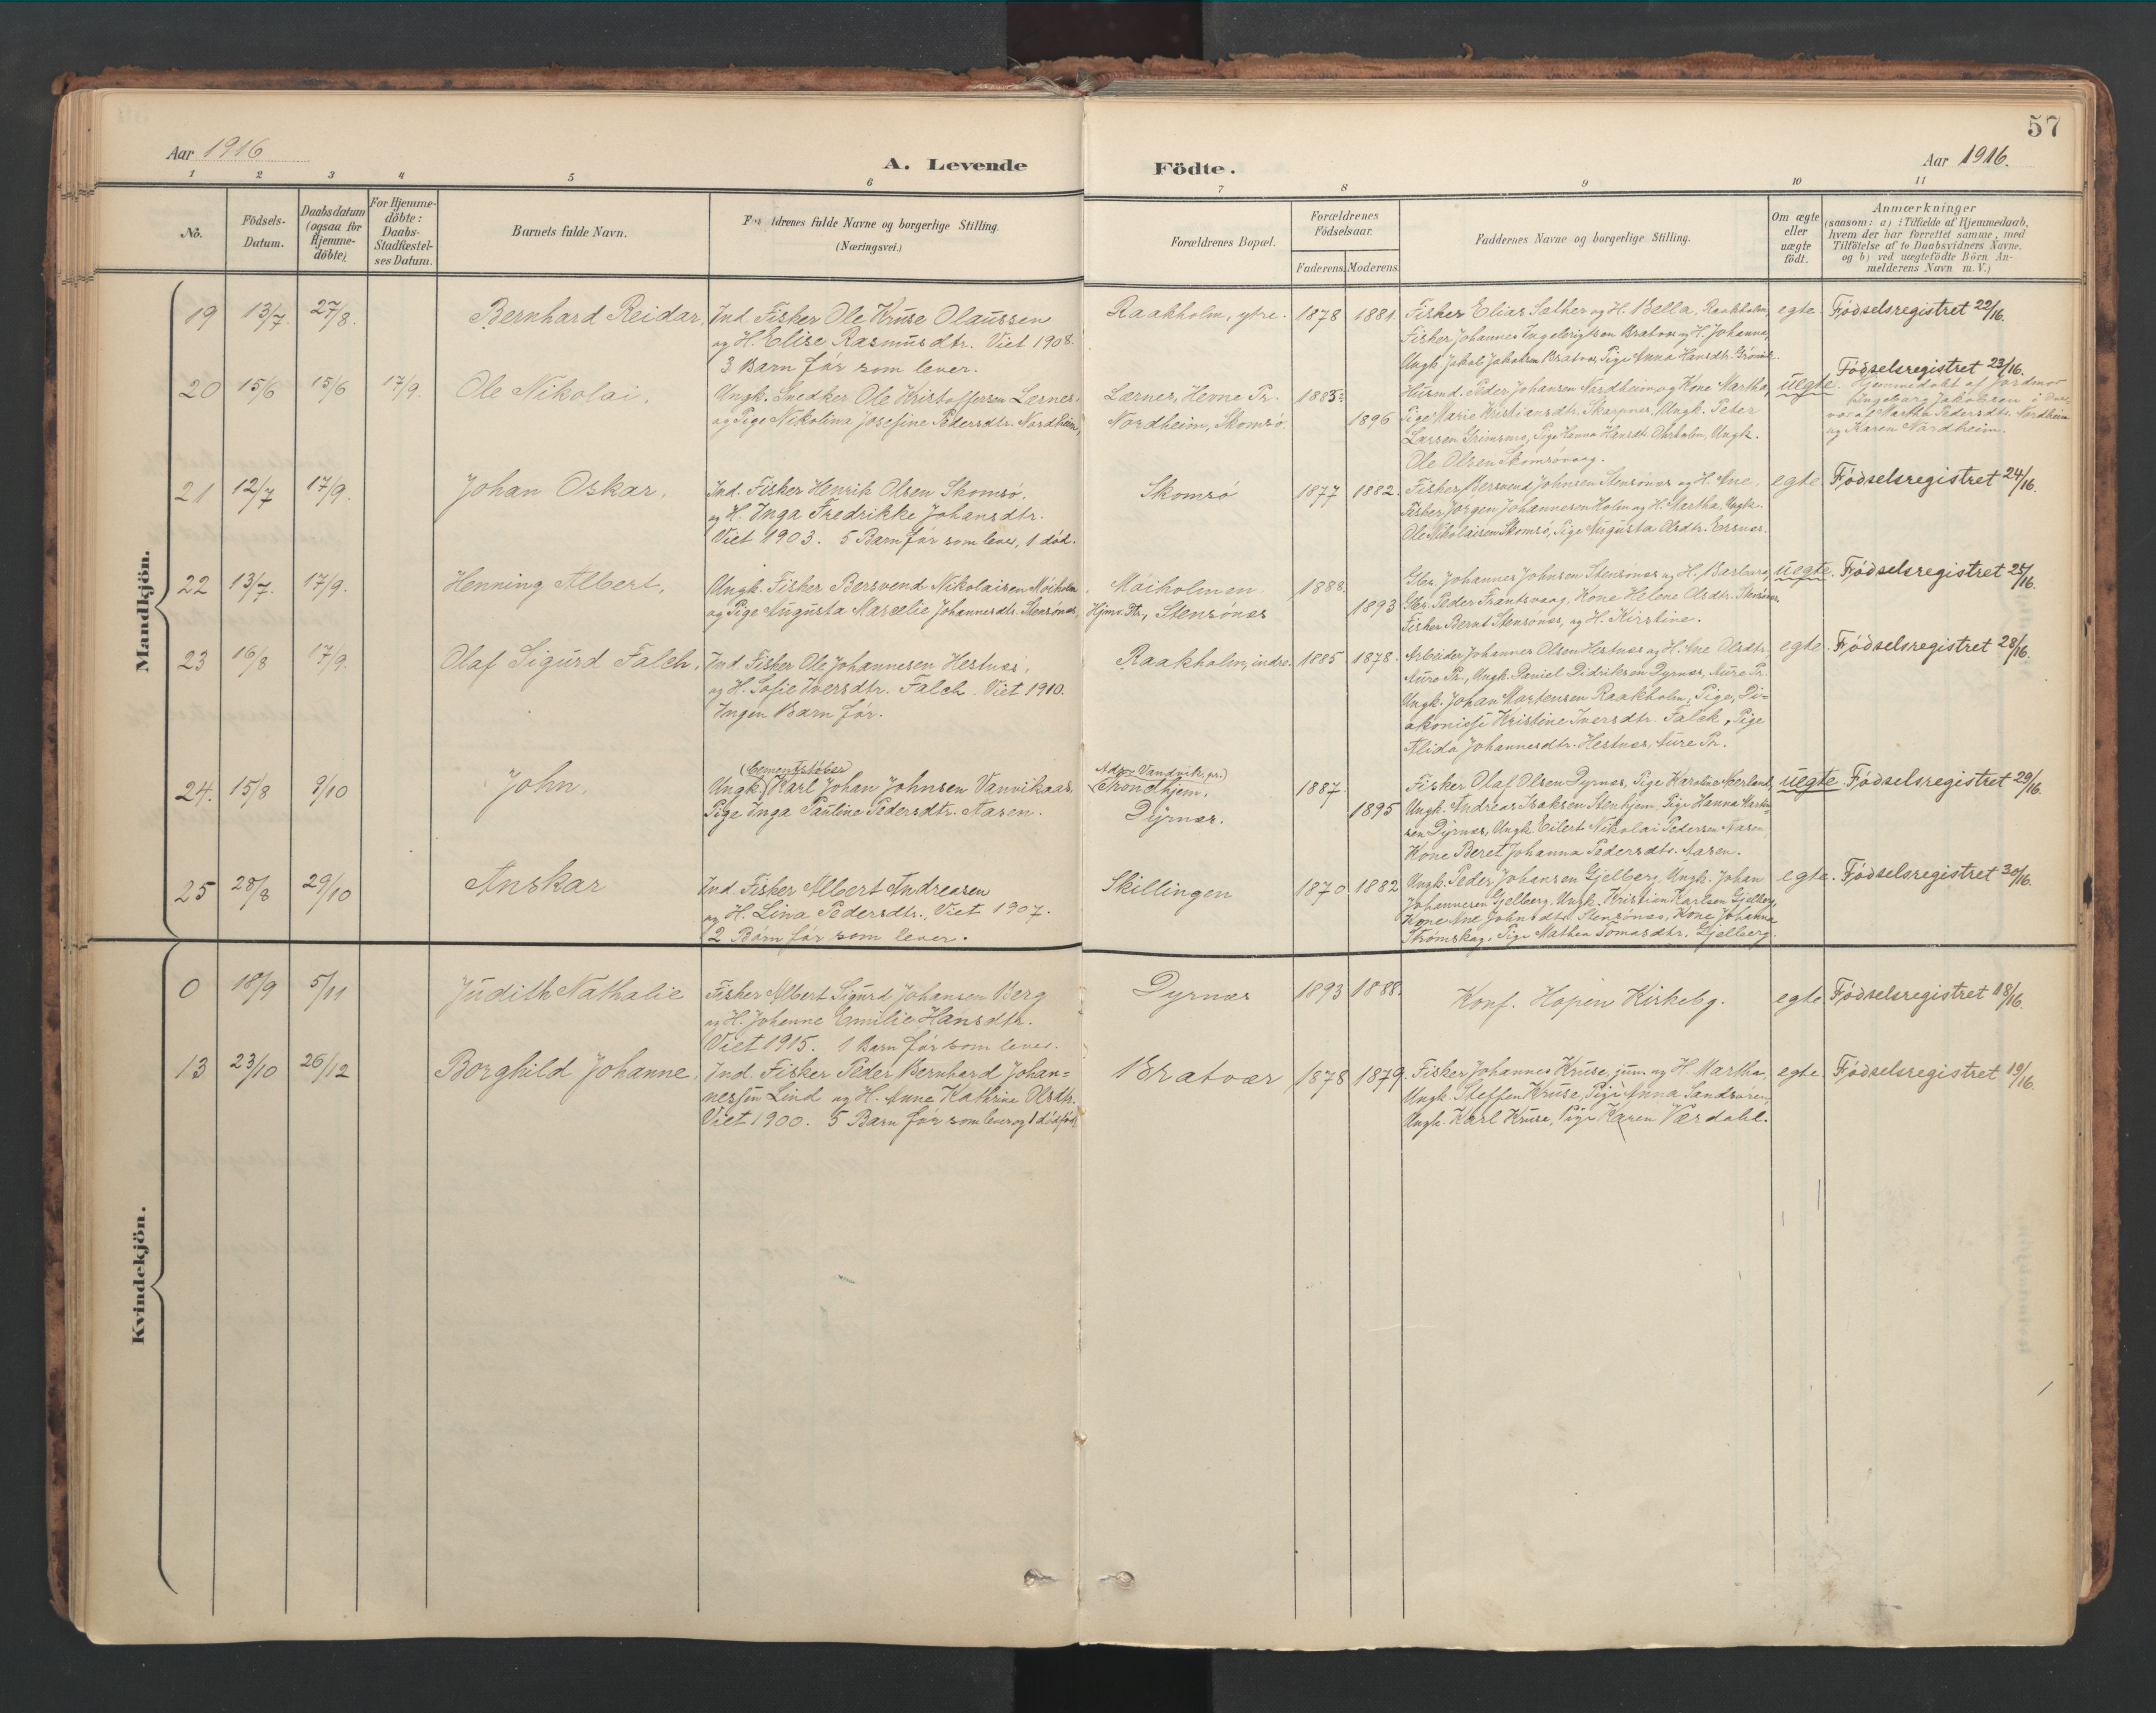 57
Aar 1916
A. Levende
Födte.
Aar 1916.
1 2 3 4 5 6 7 8 9 10 11
No.
Födsels-
Datum.
Daabsdatum
(ogsaa for
Hjemme-
döbte).
For Hjemme-
döbte:
Daabs-
Stadfæstel-
ses Datum.
Barnets fulde Navn.
Forældrenes fulde Navne og borgerlige Stilling.
(Næringsvei.)
Forældrenes Bopæl.
Forældrenes
Födselsaar.
Faderens. Moderens.
Faddernes Navne og borgerlige Stilling.
Om ægte
eller
uægte
födt.
Anmærkninger
(saasom: a) i Tilfælde af Hjemmedaab,
hvem der har forrettet samme, med
Tilföielse af to Daabsvidners Navne,
og b) ved uægtefödte Börn An-
melderens Navn m. V.)
Mandkjön.
19 13/7. 27/8. Bernhard Reidar, Ind. Fisker Ole Kruse Olaussen
og H. Elise Rasmusdtr. Viet 1908.
3 Barn før som lever.
Raakholm, ytre. 1878 1881. Fisker Elias Sæther og H. Bella, Raakholm,
Fisker Johannes Ingebrigtsen Bratvær og H. Johanna,
Ungk. Jakob Jakobsen Bratvær, Pige Anna Hansdtr. Grønvik.
egte. Fødselsregistret 22/16.
20 15/6 15/6 17/9. Ole Nikolai. Ungk. Snedker Ole Kristoffersen Lernes,
og Pige Nikolina Josefine Pedersdtr. Nordheim,
Lernes, Hevne Pr. 1885
Nordheim, Skomsø. 1896
Husmd. Peder Johansen Nordheim og Kone Martha,
Pige Marie Kristiansdtr. Skarpnes, Ungk. Peter
Larsen Grimsmo, Pige Hanna Hansdtr. Ørsholm, Ungk.
Ole Olsen Skomsøvaag.
uegte. Fødselsregistret 23/16.
Hjemmedøbt af Jordmor
Ingeborg Jakobsen i
af Martha Pedersdtr. Nordheim
og Karen Nordheim.
21 12/7 17/9. Johan Oskar. Ind. Fisker Henrik Olsen Skomsø.
og H. Inga Fredrikke Johansdtr.
Viet 1903. 5 Barn før som lever, 1 død.
Skomsø 1877 1882. Fisker Bersvend Johnsen Stensønes og H. Ane,
Fisker Jørgen Johannesen Holm og H. Martha, Ungk.
Ole Nikolaisen Skomsø, Pige Augusta Olsdtr. Eossnes.
egte. Fødselsregistret 24/16.
22 13/7. 17/9. Henning Albert. Ungk. Fisker Bersvend Nikolaisen Møiholm
og Pige Augusta Marselie Johannesdtr. Stensønes,
Møiholmen. 1888.
Hjms. Pr., Stensønes 1893
Gbr. Johannes Johnsen Stensønes og H. Barbara,
Gbr. Peder Frantsvaag, Kone Helene Olsdtr. Stensønes
Fisker Bernt Stensønes, og H. Kirstine.
uegte. Fødselsregistret 25/16.
23 16/8 17/9. Olaf Sigurd Falch, Ind. Fisker Ole Johannesen Hestnes,
og H. Sofie Iversdtr. Falch. Viet 1910.
Ingen Barn før.
Raakholm, indre. 1885 1878. Arbeider Johannes Olsen Hestnes og H. Ane Olsdtr.
Aure Pr., Ungk. Daniel Didriksen Dyrnes, Aure Pr.
Ungk. Johan Mortensen Raakholm, Pige, Di-
akonisse Kristine Iversdtr. Falck, Pige
Alida Johannesdtr. Hestnes, Aure Pr.
egte. Fødselsregistret 28/16.
24. 15/8 9/10 John.
(Cementstøber)
Ungk. Karl Johan Johnsen Vanvikaas.
Pige Inga Pauline Pedersdtr. Aasen.
Adr. Vandvik, pr.
Trondhjem. 1887.
Dyrnes. 1895
Fisker Olaf Olsen Dyrnes, Pige Karoline Nerland,
Ungk. Andreas Isaksen Stenhjem, Pige Hanna Martin-
sen Dyrnes, Ungk. Eilert Nikolai Pedersen Aasen,
Kone Beret Johanna Pedersdtr. Aasen.
uegte. Fødselsregistret 29/16.
25 28/8 29/10 Anskar Ind. Fisker Albert Andreasen
og H. Lina Pedersdtr., Viet 1907.
2 Børn før som lever.
Skillingen 1870 1882 Ungk. Peder Johansen Gjelberg, Ungk. Johan
Johannesen Gjelberg, Ungk. Kristian Karlsen Gjelberg,
Kone Ane Johnsdtr. Stensønes, Kone Johanna
Strømskag, Pige Mathea Tomasdtr. Gjelberg.
egte. Fødselsregistret 30/16.
Kvindekjön.
0 18/9 5/11 Judith Nathalie Fisker Albert Sigurd Johansen Berg
og H. Johanne Emilie Hansdtr.
Viet 1915. 1 Barn før som lever.
Dyrnes 1893 1888. Konf. Hopen Kirkebg. egte. Fødselsregistret 18/16.
13 23/10 26/12 Borghild Johanne, Ind. Fisker Peder Bernhard Johan=
nessen Lind og H. Anne Kathrine Olsdtr.
Viet 1900. 5 Barn før som lever og 1 dødfødt
Bratvær 1878 1879. Fisker Johannes Kruse, jun. og H. Martha,
Ungk. Steffen Kruse, Pige Anna Sandsøren,
Ungk. Karl Kruse, Pige Karen Værdahl.
egte. Fødselsregistret 19/16.